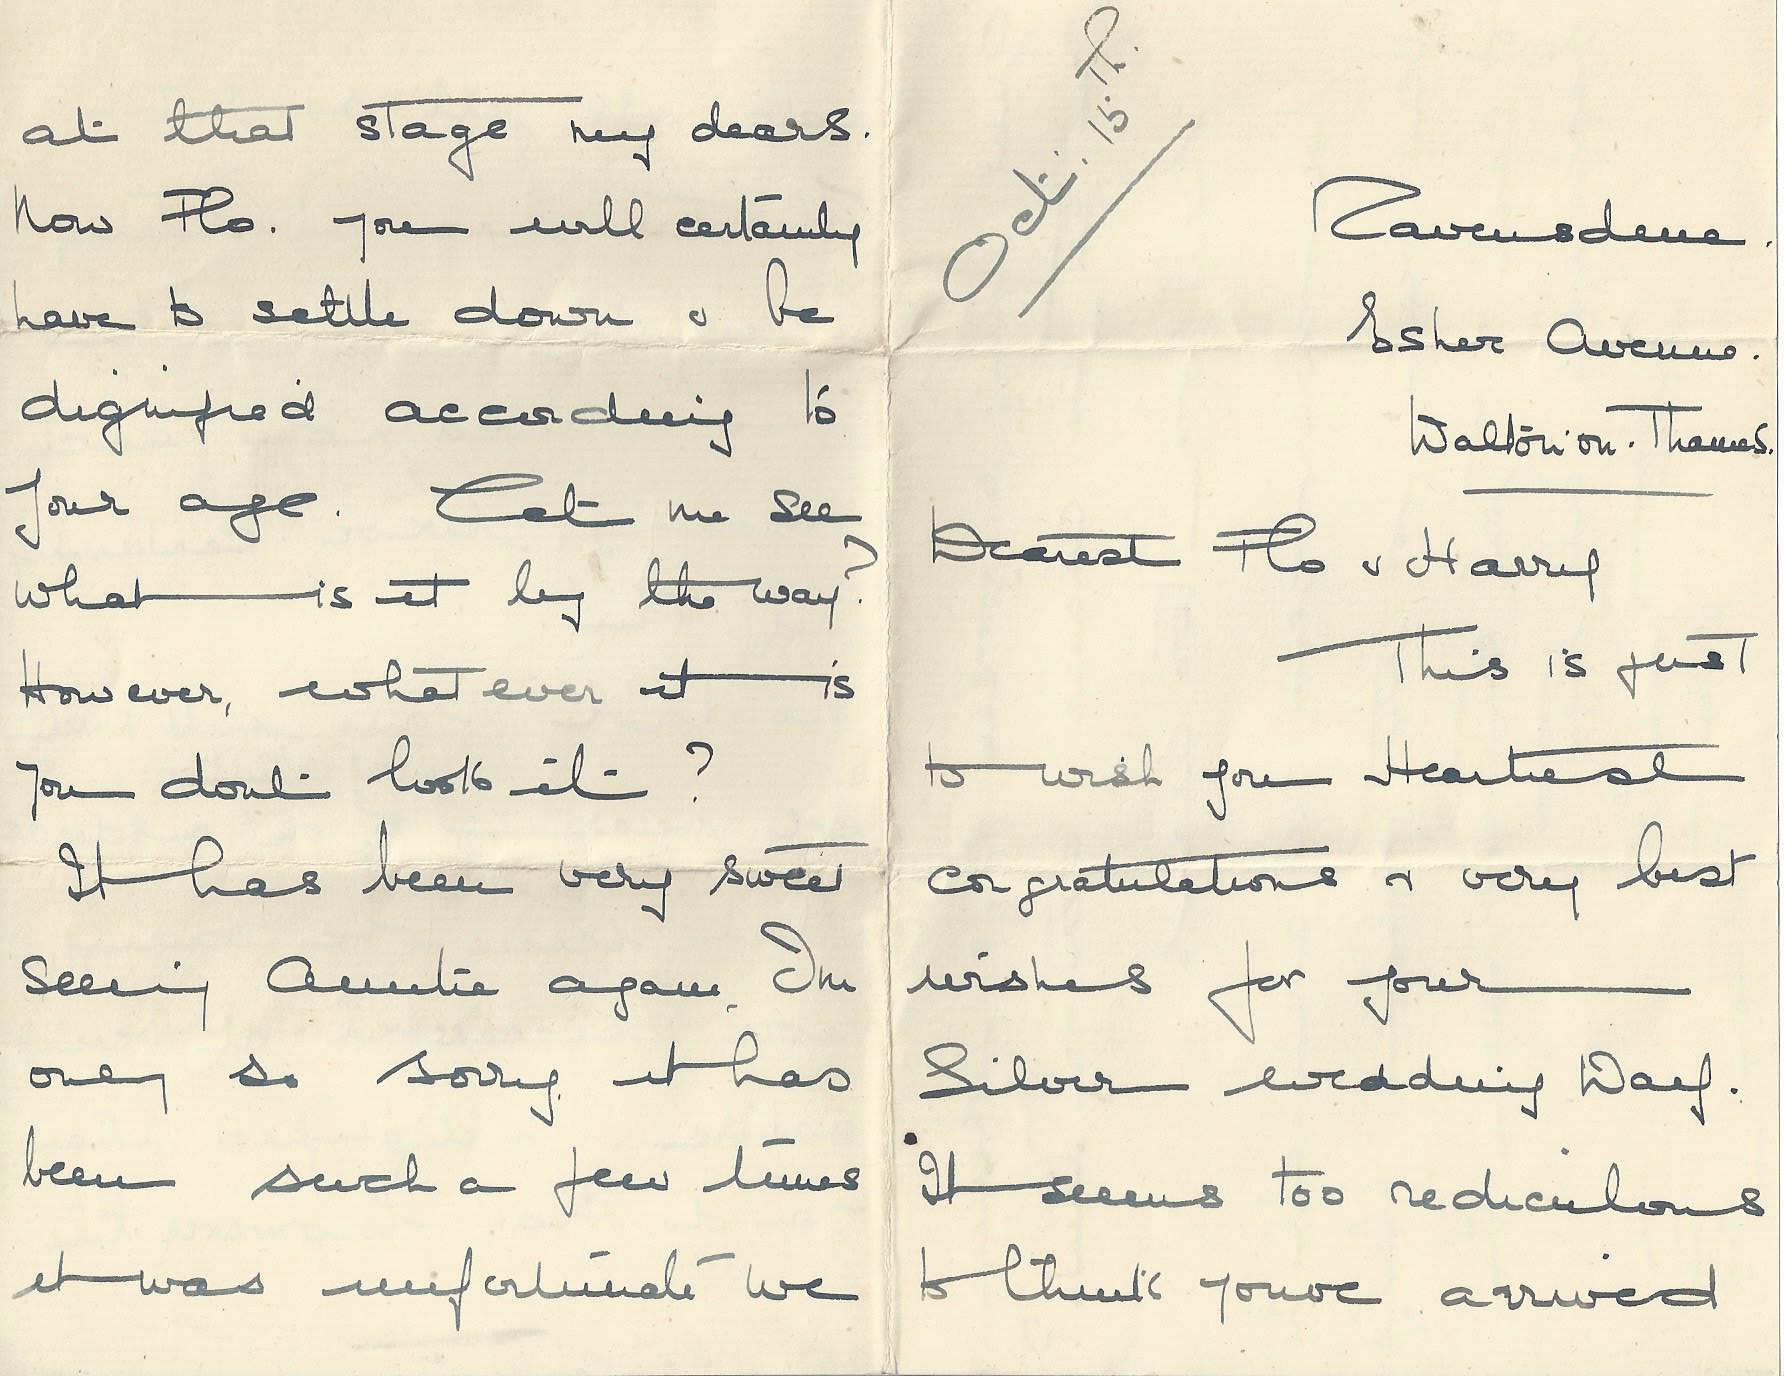 Oct: 15.Th.
Ravensdene.
Esher Avenue.
Walton-on-Thames.
Dearest Flo & Harry
This is just
to wish you Heartiest
congratulations & very best
wishes for your
Silver wedding Day.
It seems too rediculous
to think youve arrived
at that stage my dears.
Now Flo. you will certainly
have to settle down & be
dignified according to
your age. Let me see
what is it by the way?
However, what ever it is
you dont look it?
It has been very sweet
seeing Auntie again. I'm
only so sorry it has
been such a few times
it was unfortunate we